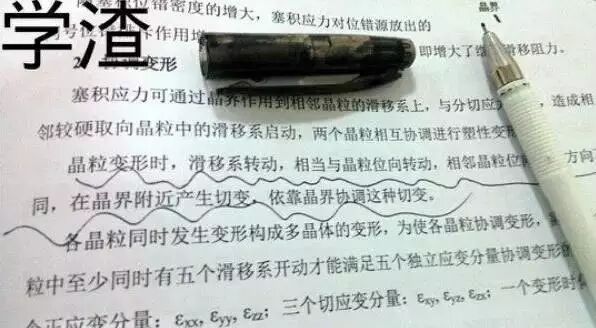 学渣
晶界
位错密度的增大，塞积应力对位错源放出的
作用增
即增大了
滑移阻力。
变形
塞积应力可通过晶界作用到相邻晶粒的滑移系上，与分切应
，造成相
邻较硬取向晶粒中的滑移系启动，两个晶粒相互协调进行塑性变
晶粒变形时，滑移系转动，相当与晶粒位向转动，相邻晶粒位
方向
同，在晶界附近产生切变，依靠晶界协调这种切变。
各晶粒同时发生变形构成多晶体的变形，为使各晶粒协调变形，
粒中至少同时有五个滑移系开动才能满足五个独立应变分量协调变形的
个正应变分量：εxx, εyy, εzz；三个切应变分量：εxy, εyz, εzx；一个变形时